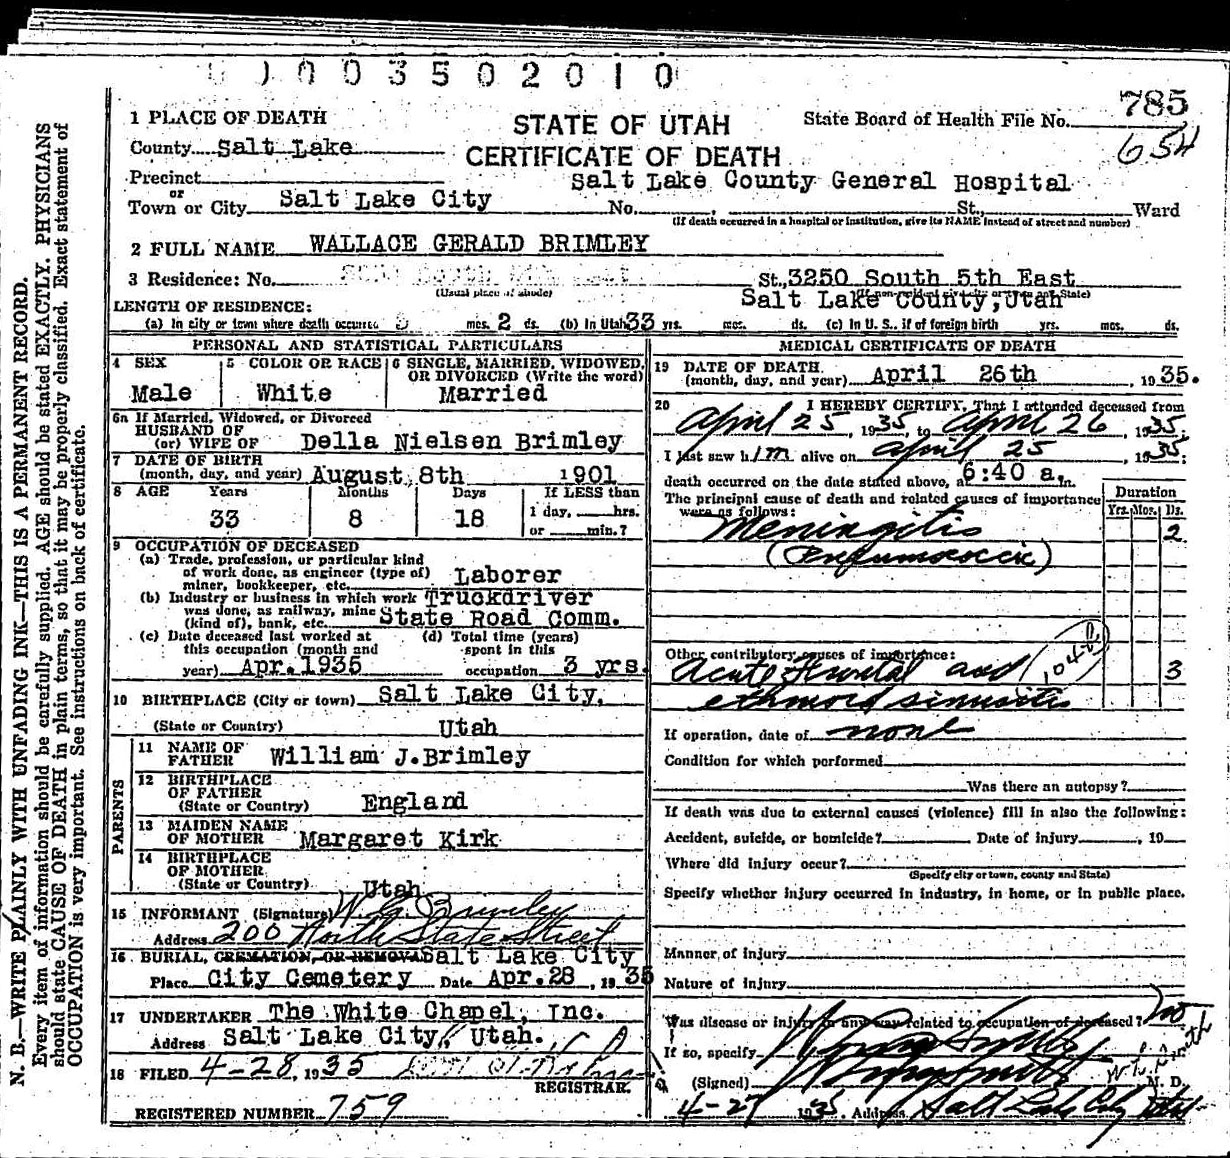 0 0 3 5 0 2 0 1 0
785
654
1 PLACE OF DEATH
STATE OF UTAH
State Board of Health File No.
County Salt Lake
CERTIFICATE OF DEATH
Precinct
Salt Lake County General Hospital
or
Town or City Salt Lake City No. , St., Ward
(If death occurred in a hospital or institution, give its NAME instead of street and number)
2 FULL NAME WALLACE GERALD BRIMLEY
3 Residence: No. St., 3250 South 5th East
(Usual place of abode)
Salt Lake County, Utah
LENGTH OF RESIDENCE:
(a) In city or town where death occurred mos. 2 ds. (b) In Utah 33 yrs. mos. ds. (c) In U. S., if of foreign birth yrs. mos. ds.
PERSONAL AND STATISTICAL PARTICULARS
4 SEX
Male
5 COLOR OR RACE
White
6 SINGLE, MARRIED, WIDOWED, OR DIVORCED (Write the word)
Married
6a If Married, Widowed, or Divorced
HUSBAND OF
(or) WIFE OF Della Nielsen Brimley
7 DATE OF BIRTH
(month, day, and year) August 8th 1901
8 AGE Years Months Days If LESS than
33 8 18 1 day, hrs.
or min.?
9 OCCUPATION OF DECEASED
(a) Trade, profession, or particular kind
of work done, as engineer (type of)
miner, bookkeeper, etc. Laborer
(b) Industry or business in which work Truckdriver
was done, as railway, mine
(kind of), bank, etc. State Road Comm.
(c) Date deceased last worked at
this occupation (month and
year) Apr. 1935
(d) Total time (years)
spent in this
occupation 3 yrs.
10 BIRTHPLACE (City or town) Salt Lake City,
(State or Country) Utah
PARENTS
11 NAME OF
FATHER William J. Brimley
12 BIRTHPLACE
OF FATHER
(State or Country) England
13 MAIDEN NAME
OF MOTHER Margaret Kirk
14 BIRTHPLACE
OF MOTHER
(State or Country) Utah
15 INFORMANT (Signature) W. G. Brimley
Address 200 North State Street
16 BURIAL, CREMATION, OR REMOVAL Salt Lake City
Place City Cemetery Date Apr. 28, 1935
17 UNDERTAKER The White Chapel, Inc.
Address Salt Lake City, Utah.
18 FILED 4-28, 1935
REGISTRAR.
REGISTERED NUMBER 759
MEDICAL CERTIFICATE OF DEATH
19 DATE OF DEATH
(month, day, and year) April 26th, 1935.
20 I HEREBY CERTIFY, That I attended deceased from
April 25, 1935, to April 26, 1935;
I last saw him alive on April 25, 1935;
death occurred on the date stated above, at 6:40 a. m.
The principal cause of death and related causes of importance
were as follows:
Duration
Yrs. Mos. Ds.
Meningitis 2
(Pneumococcic)
Other contributory causes of importance:
Acute Frontal and 3
ethmoid sinusitis
If operation, date of none
Condition for which performed
Was there an autopsy?
If death was due to external causes (violence) fill in also the following:
Accident, suicide, or homicide? Date of injury , 19
Where did injury occur?
(Specify city or town, county and State)
Specify whether injury occurred in industry, in home, or in public place.
Manner of injury
Nature of injury
Was disease or injury in any way related to occupation of deceased? no
If so, specify
(Signed) M. D.
4-27 1935. Address Salt Lake City Utah
N. B.—WRITE PLAINLY WITH UNFADING INK—THIS IS A PERMANENT RECORD.
Every item of information should be carefully supplied. AGE should be stated EXACTLY. PHYSICIANS
should state CAUSE OF DEATH in plain terms, so that it may be properly classified. Exact statement of
OCCUPATION is very important. See instructions on back of certificate.